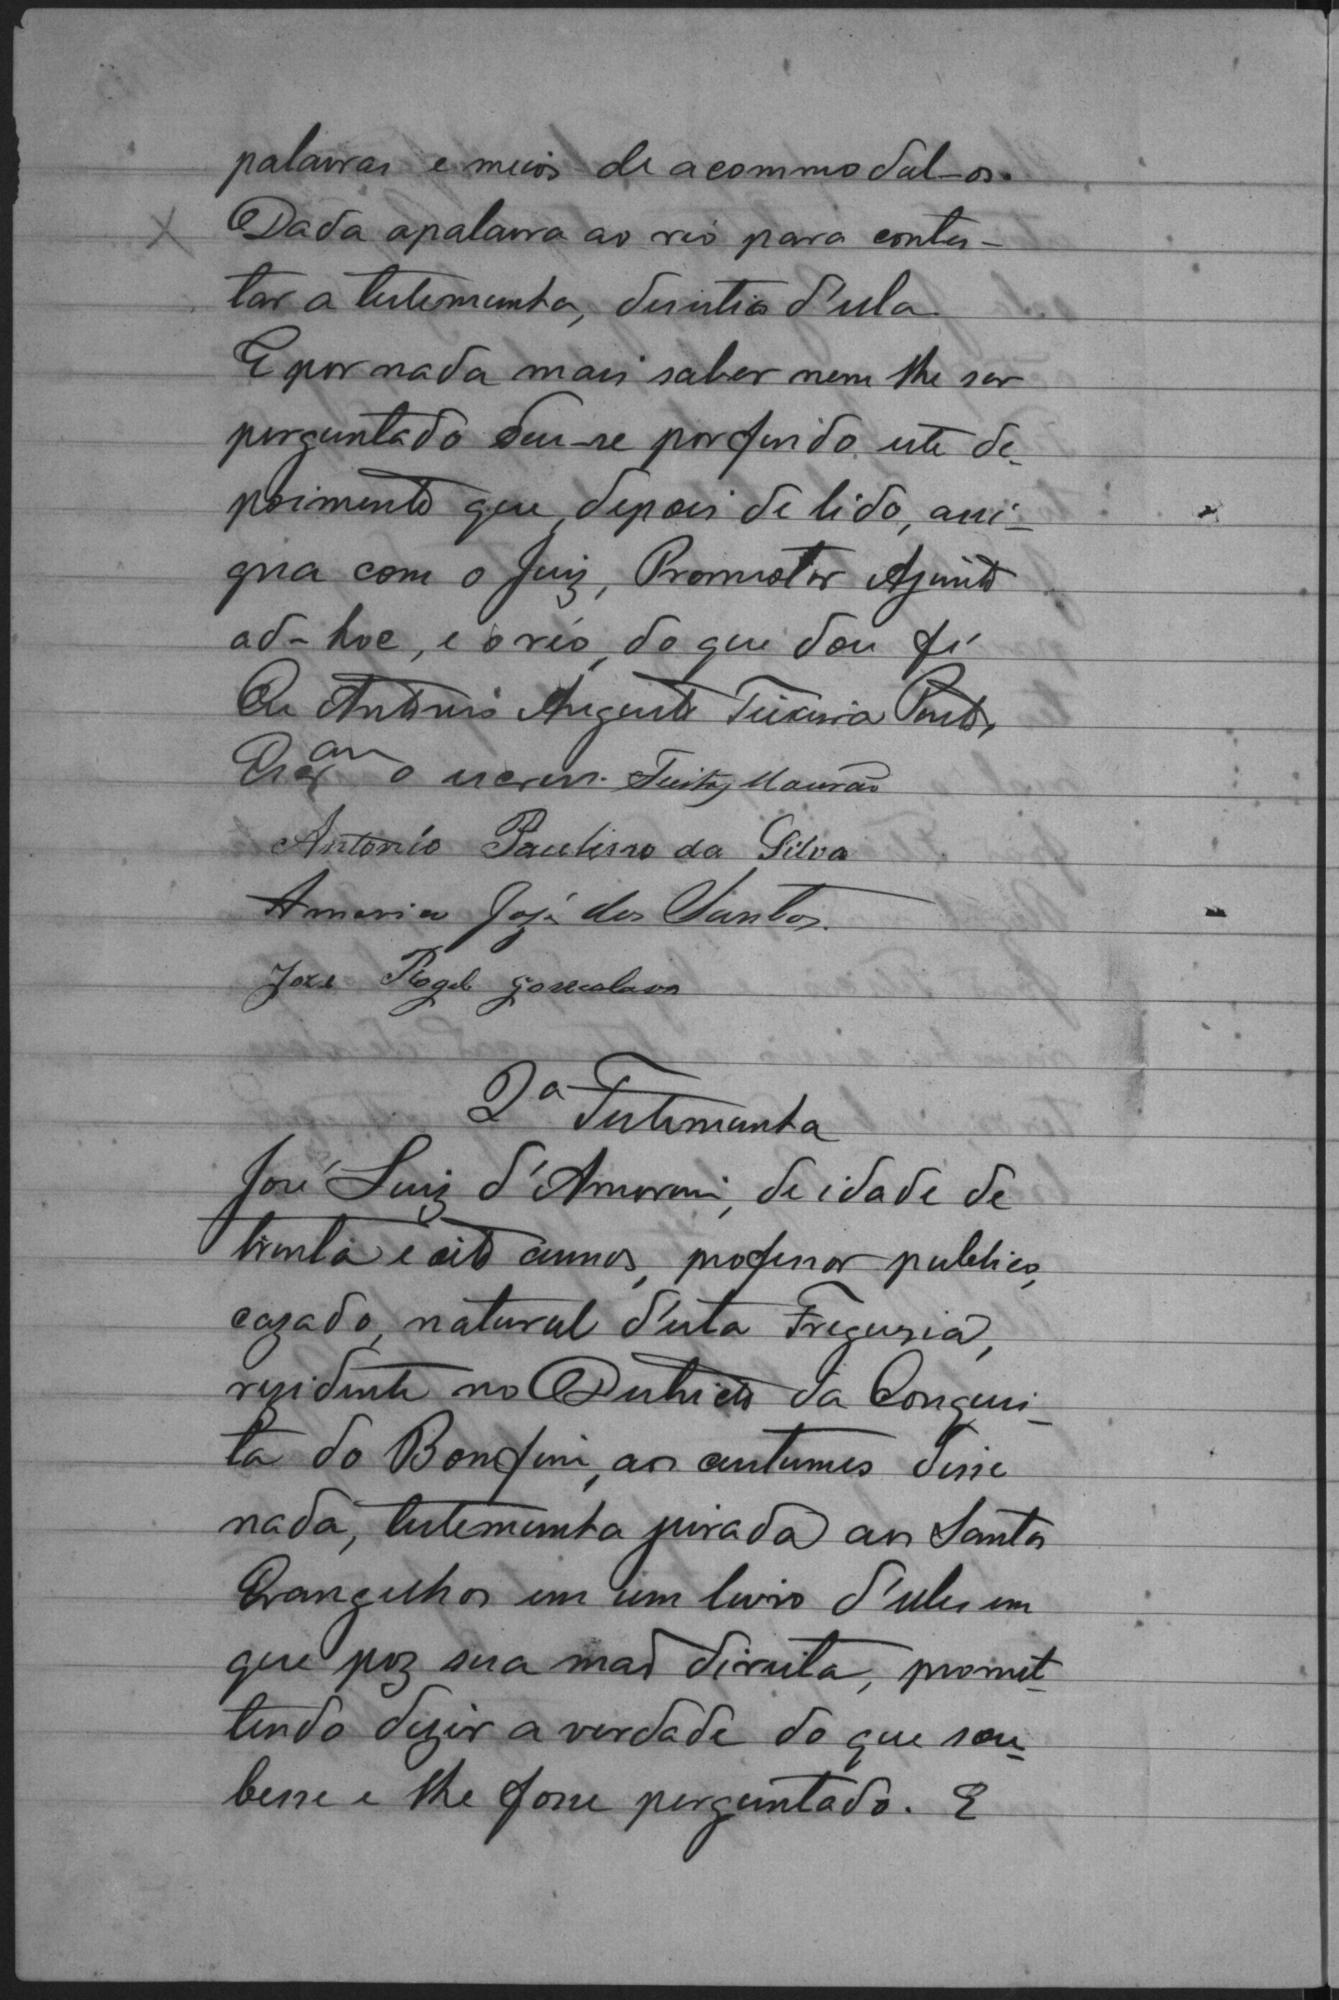 palavras e meios de acommodal-os.
Dada a palavra ao réo para contes-
tar a testemunha, desistio d'ella.
E por nada mais saber nem lhe ser
perguntado deu-se por findo este de-
poimento que, depois de lido, assi-
gna com o Juiz, Promotor Ajunto
ad-hoc, e o réo, do que dou fé
Eu Antonio Augusto Teixeira Pinto,
Escr am o escrevi. Freitas Mourão
Antonio Paulino da Silva
America José dos Santos.
José Gonsalves
2a Testemunha
José Luiz d'Amorim, de idade de
trinta e oito annos, professor publico,
cazado, natural d'esta Freguezia,
rezidente no Districto da Conquis-
ta do Bomfim, aos custumes disse
nada, testemunha jurada aos Santos
Evangelhos em um livro d'elles em
que poz sua mão direita, promet-
tendo dizer a verdade do que sou-
besse e lhe fosse perguntado. E